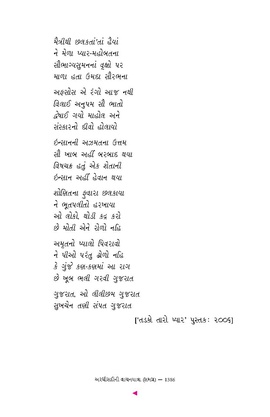 મૈત્રીથી છલકતાં'તાં હૈયાં
ને મેળા પ્યાર-મહોબતના
સૌભાગ્યસુમનનાં વૃક્ષો પર
માળા હતા ઉમદા સૌરભના
અફસોસ એ રંગો આજ નથી
વિલાઈ અનુપમ સૌ ભાતો
ઢંઘાઈ ગયો માહોલ અને
સંસ્કારનો દીવો હોલાયો
ઇન્સાનની અઝમતના ઉત્તમ
સૌ ખાબ અહીં બરબાદ થયા
વિષચક્ર હતું એક શેતાની
ઇન્સાન અહીં હેવાન થયા
શોણિતના ફુવારા છલકાયા
ને ભૂતપલીતો હરખાયા
ઓ લોકો, થોડી કદ્ર કરો
છે મોતી એને રોળો નહિ
અમૃતનો પ્યાલો પિવરાવો
ને પીઓ પરંતુ ઢોળો નહિ
કે ગુંજે કણ-કણમાં આ રાગ
છે ખૂબ ભલી ગરવી ગુજરાત
ગુજરાત, ઓ લીલીછમ ગુજરાત
સુખચેન તણી સંપત ગુજરાત
['તડકો તારો પ્યાર' પુસ્તક: ૨૦૦૬]